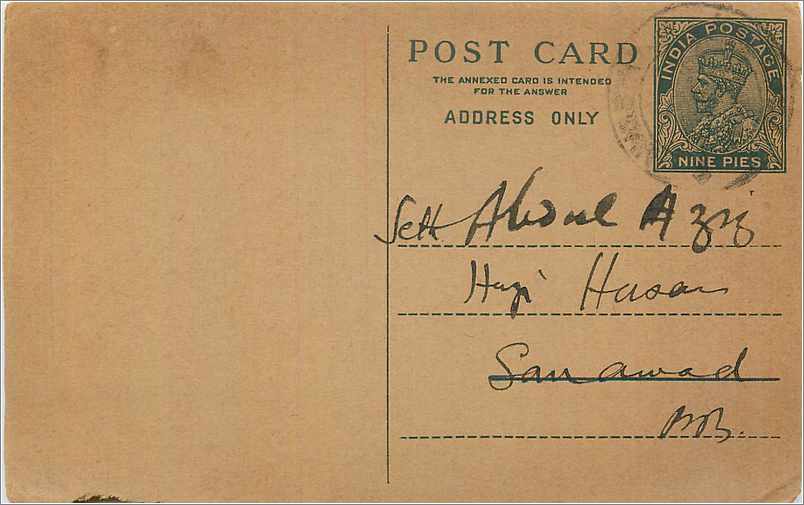 POST CARD
THE ANNEXED CARD IS INTENDED
FOR THE ANSWER
ADDRESS ONLY
INDIA POSTAGE
NINE PIES
Seth Abdul Aziz
Haji Hasan
Sanawad